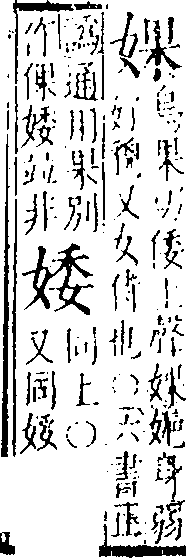 婐烏果切倭上聲婐身弱
好貌又女侍也○六書正
譌通用果別
作倮婑並非
婑同上○
又同